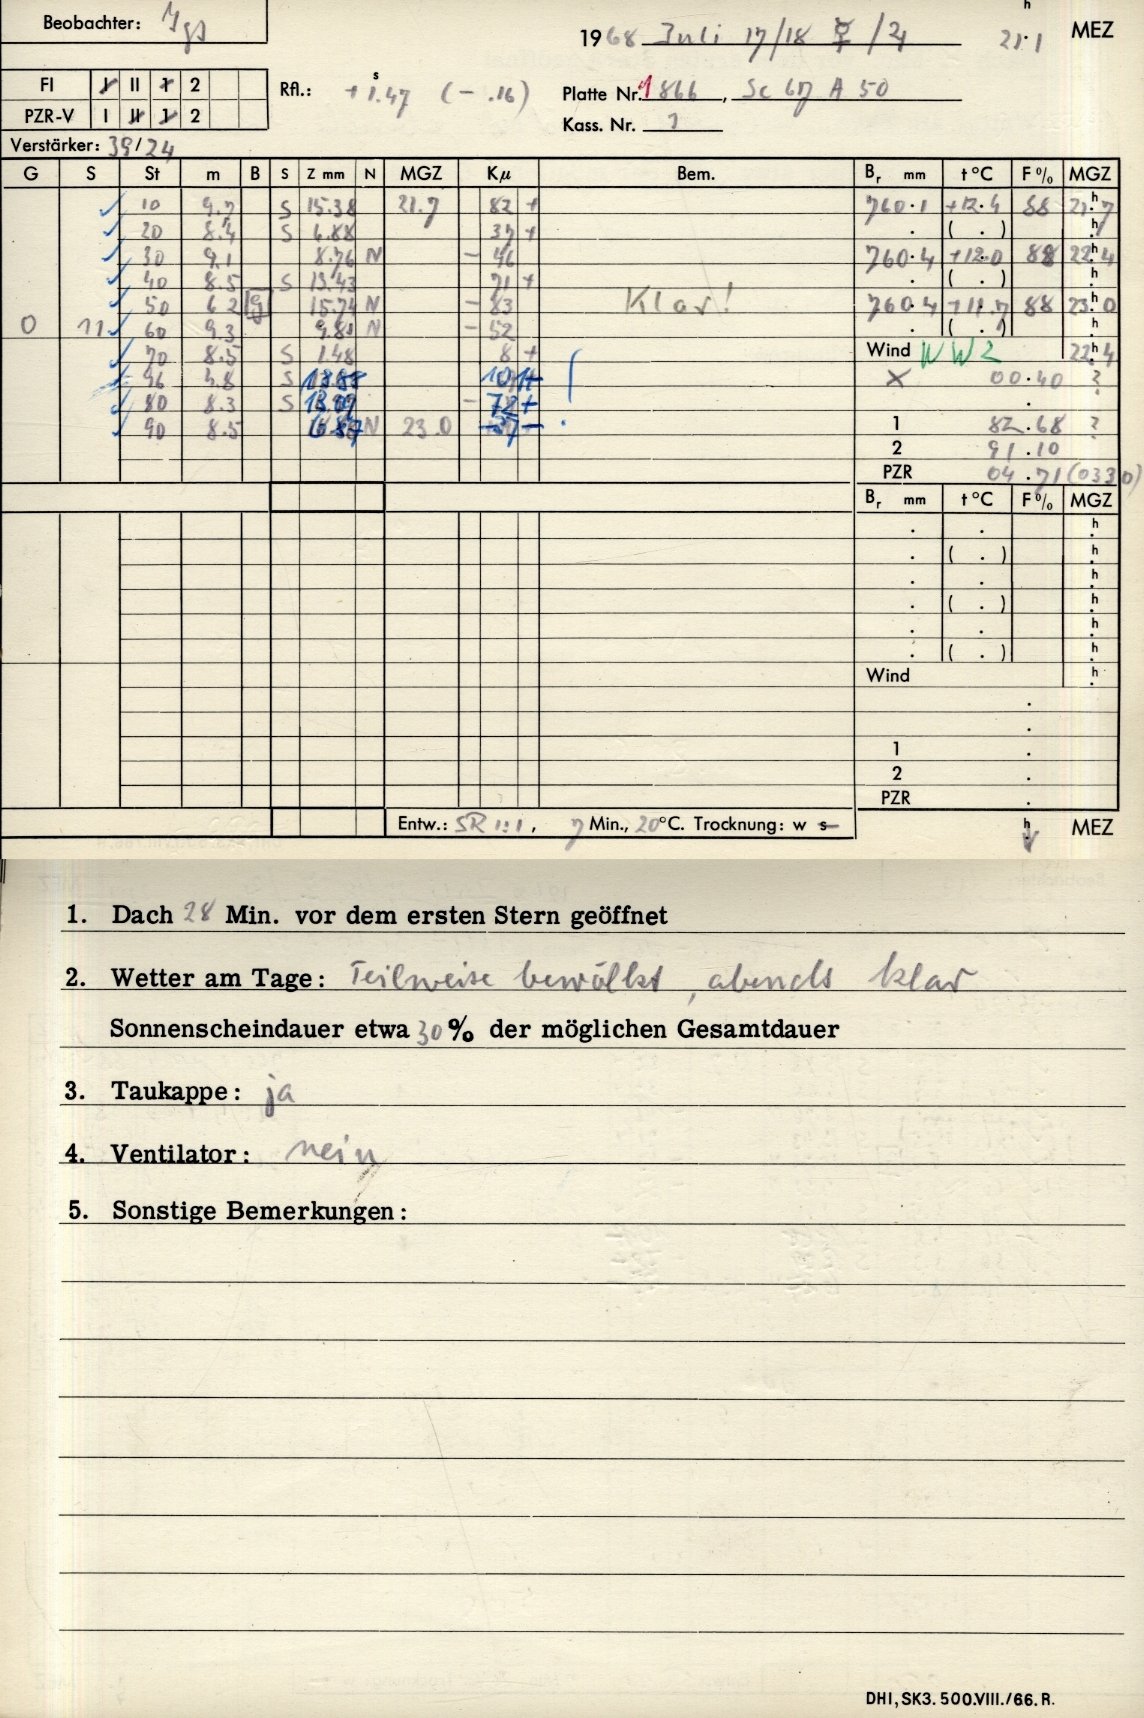 Beobachter:
1968 Juli 17/18 ☿ / ♃ 21.1 h MEZ
FI I II 1 2
PZR-V I II 1 2
Rfl.: + 1.47 s (- .16)
Platte Nr. 1866, Sc 67 A 50
Kass. Nr. 1
Verstärker: 39/24
G S St m B S Z mm N MGZ Kμ Bem. Br mm t °C F % MGZ
10 9.7 S 15.38 21.7 82 + 760.1 +12.4 88 21.7 h
20 8.4 S 6.88 37 + . ( . ) h
30 9.1 8.76 N - 46 760.4 +12.0 88 22.4 h
40 8.5 S 13.43 71 + . ( . ) h
50 6.2 g 15.74 N - 83 Klar! 760.4 +11.7 88 23.0 h
0 11 60 9.3 9.81 N - 52 . ( . ) h
70 8.5 S 1.48 8 + Wind WW2 22.4 h
8 S + × 00.40 ?
80 8.3 S 72 + .
90 8.5 N 23.0 - 1 82.68 ?
2 91.10
PZR 04.71 (0330)
Br mm t °C F % MGZ
. . h
. ( . ) h
. . h
. ( . ) h
. . h
. ( . ) h
Wind h
.
.
1 .
2 .
PZR .
Entw.: SR 1:1, 7 Min., 20°C. Trocknung: w s h MEZ
1. Dach 28 Min. vor dem ersten Stern geöffnet
2. Wetter am Tage: Teilweise bewölkt, abends klar
Sonnenscheindauer etwa 30% der möglichen Gesamtdauer
3. Taukappe: ja
4. Ventilator: nein
5. Sonstige Bemerkungen:
DHI, SK3. 500.VIII./66. R.